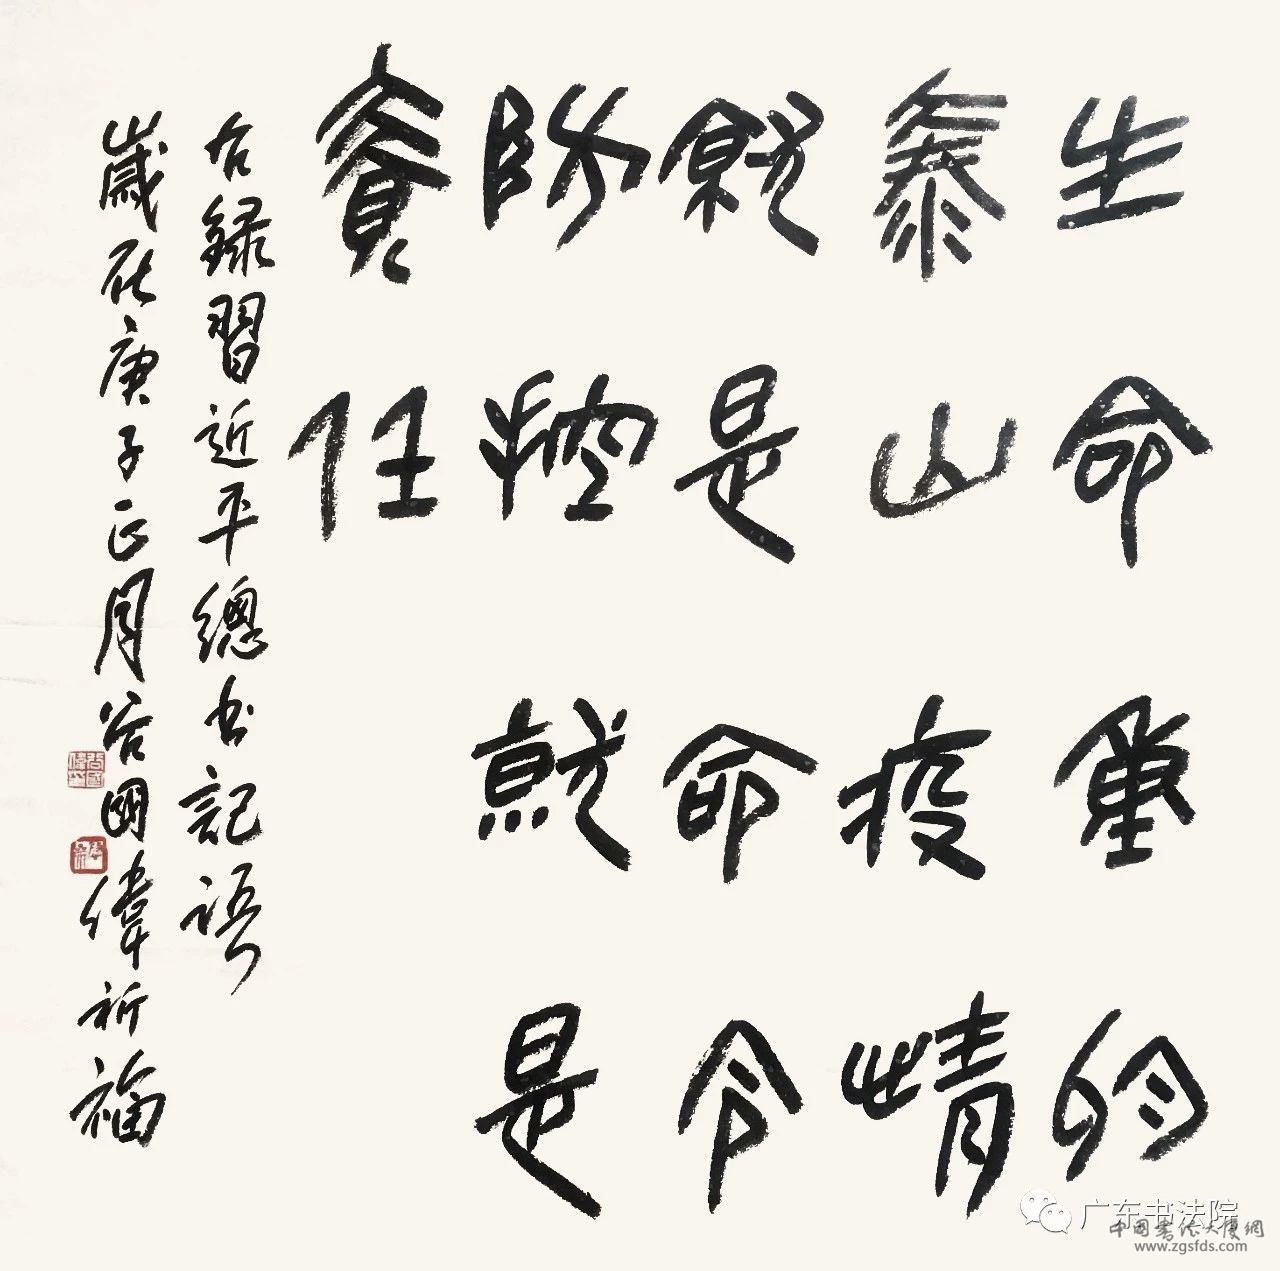 生命重於
泰山疫情
就是命令
防控就是
責任
右錄習近平總書記語
歲在庚子正月谷國偉祈福
广东书法院
中国書法大厦網
www.zgsfds.com